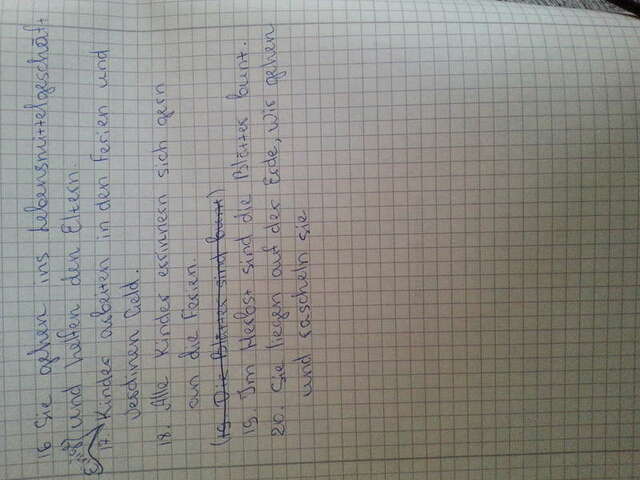 16 Sie gehen ins Lebensmittelgeschäft
und helfen den Eltern.
17. Kinder arbeiten in den Ferien und
verdinen Geld.
18. Alle Kinder erinnern sich gern
an die Ferien.
(19. Die Blätter sind bunt)
19. Im Herbst sind die Blätter bunt.
20. Sie liegen auf der Erde, wir gehen
und rascheln sie